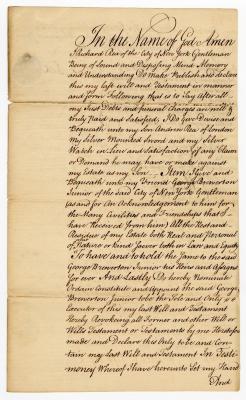 In the Name of God Amen
I Richard Rea of the City of New York Gentleman
Being of Sound and Disposing Mind Memory
and Understanding Do Make Publish and declare
this my last will and Testament in manner
and form Following that is to Say after all
my Just Debts and funeral Charges are well &
truly Paid and Satisfied. I Do Give Devise and
Bequeath unto my Son Andrew Rea of London
my Silver Mounted Sword and my Silver
Watch in Lieu and Satisfaction of any Claim
or Demand he may have or make against
my Estate as my Son. Item I Give and
Bequeath unto my Friend George Brewerton
Junior of the said City of New York Gentleman
(as and for An Acknowledgement to him for
the Many Civilities and Friendships that I
have Received from him) All the Rest and
Residue of my Estate both Real and Personal
of Nature or kind Soever both in Law and Equity
To have and to hold the Same to the said
George Brewerton Junior his Heirs and Assigns
for ever And Lastly I Do hereby Nominate
Ordain Constitute and Appoint the said George
Brewerton Junior to be the Sole and Only
Executor of this my Last Will and Testament
Hereby Revoking all Former and other Will or
Wills Testament or Testaments by me Heretofore
made and Declare this Only to be and Con-
tain my Last Will and Testament In Testi-
mony Whereof I have hereunto Set my Hand
And